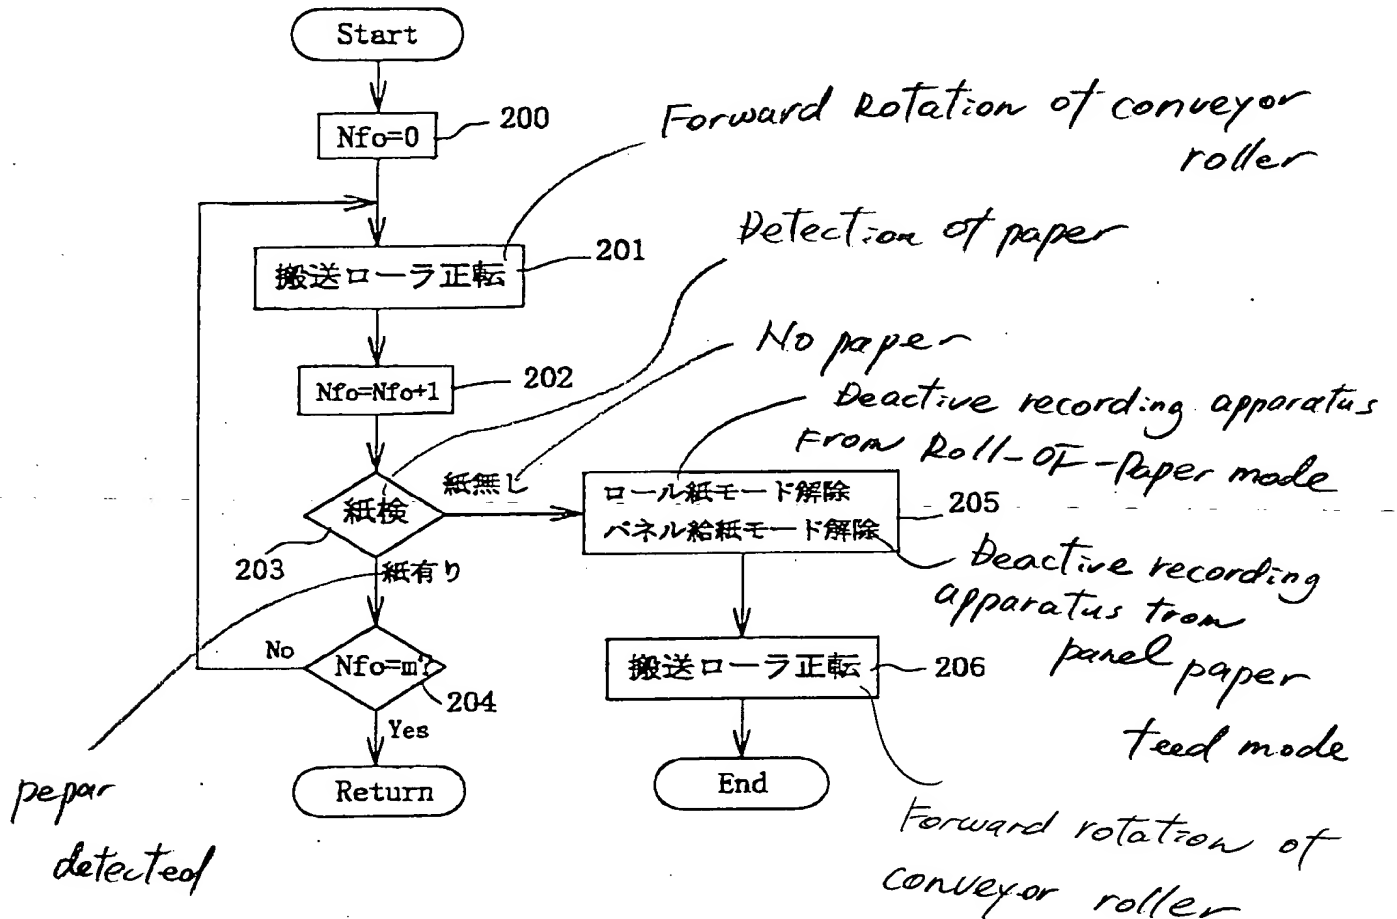 Start
Nfo=0
200
Forward Rotation of conveyor
roller
搬送ローラ正転
201
Detection of paper
Nfo=Nfo+1
202
No paper
Deactive recording apparatus
From Roll-OF-Paper mode
紙検
203
紙無し
ロール紙モード解除
パネル給紙モード解除
205
Deactive recording
apparatus from
panel paper
feed mode
紙有り
pepar
detected
Nfo=m?
204
No
Yes
搬送ローラ正転
206
Return
End
Forward rotation of
conveyor roller